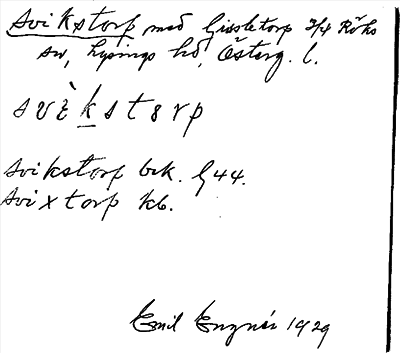 Svikstorp med Gisseltorp 3/4 Röks
sn, Lysings hd, Österg. l.
svèkstorp
Svikstorp bik. G 44.
Svixtorp kb.
Emil Engnér 1929